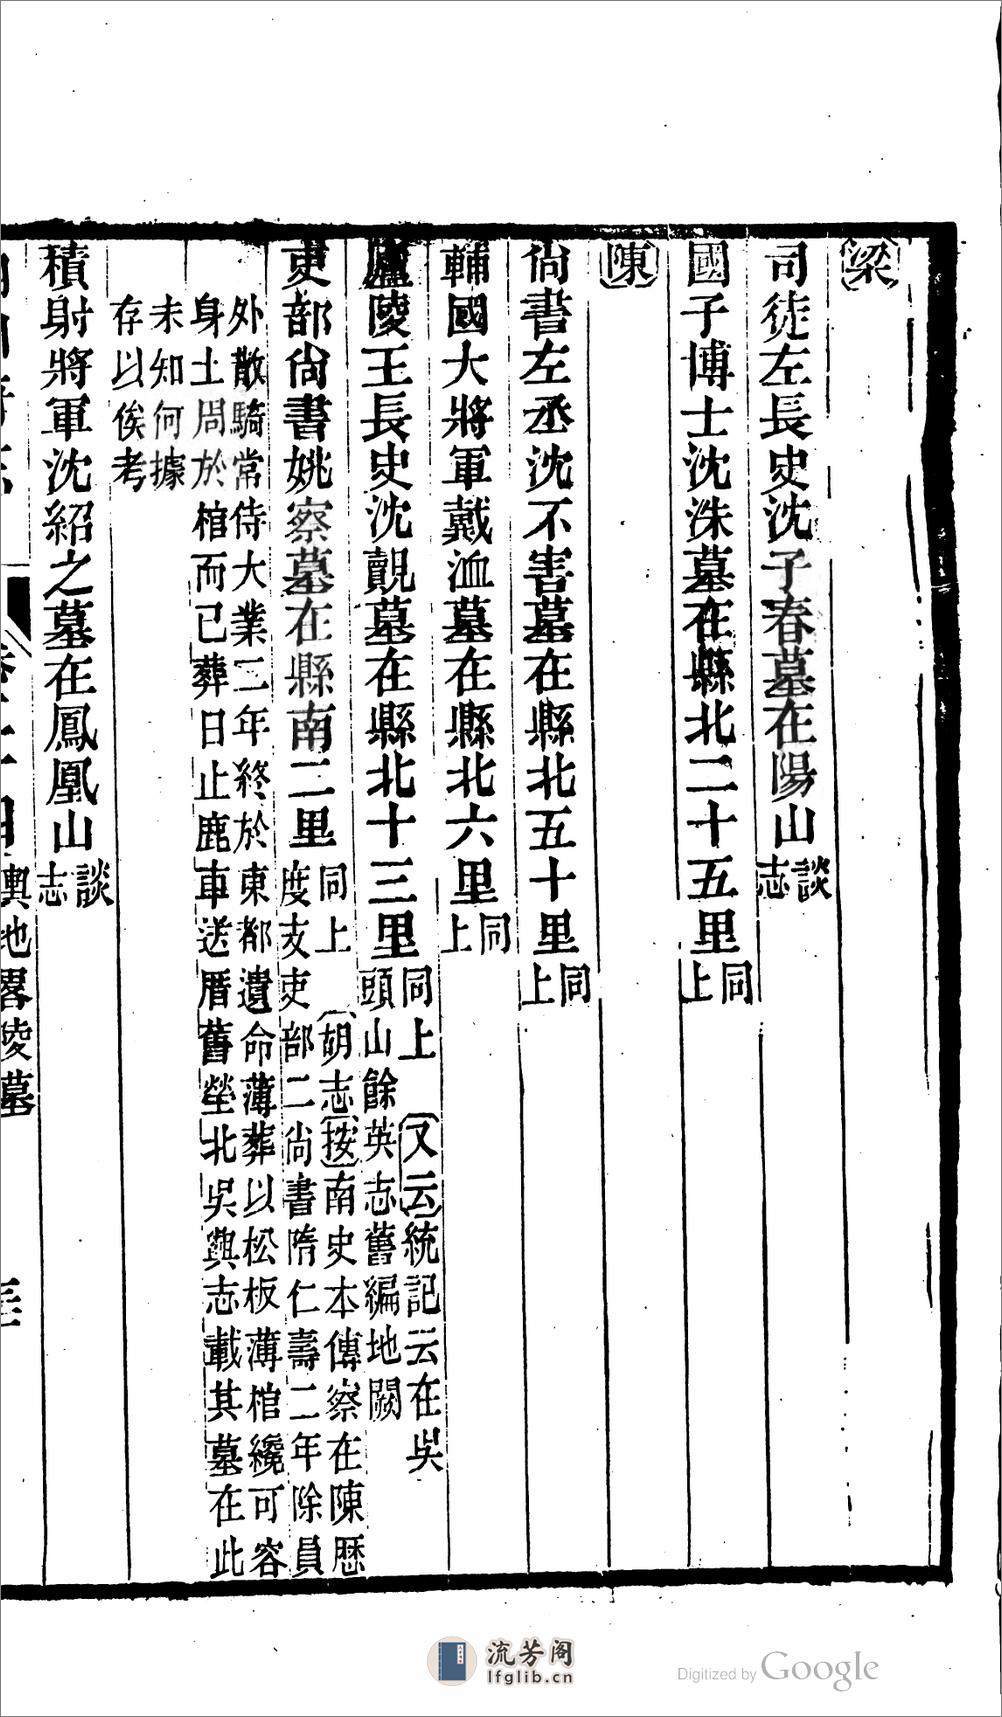 梁
司徒左長史沈子春墓在陽山談志
國子博士沈洙墓在縣北二十五里同上
陳
尙書左丞沈不害墓在縣北五十里同上
輔國大將軍戴洫墓在縣北六里同上
廬陵王長史沈覿墓在縣北十三里同上 又云統記云在吳
頭山餘英志舊編地闕
吏部尙書姚察墓在縣南二里同上 胡志按南史本傳察在陳歷
度支吏部二尙書隋仁壽二年除員
外散騎常侍大業二年終於東都遺命薄葬以松板薄棺纔可容
身土周於棺而已葬日止鹿車送厝舊塋北吳興志載其墓在此
未知何據
存以俟考
積射將軍沈紹之墓在鳳凰山談志
輿地畧陵墓
流芳阁
lfglib.cn
Digitized by Google